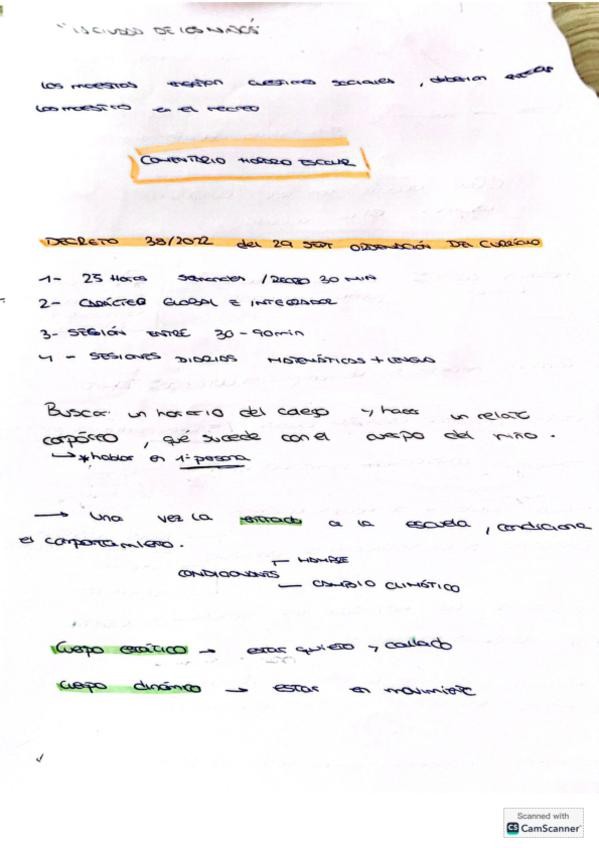 "LA CIUDAD DE LOS NIÑOS"
Los maestros enseñan cuestiones sociales, deberían
los maestros en el recreo
COMENTARIO HORARIO ESCOLAR
DECRETO 38/2022 del 29 SEPT ORDENACIÓN DEL CURRÍCULO
1- 25 Horas semanales / RECREO 30 MIN
2- CARÁCTER GLOBAL E INTEGRADOR
3- SESIÓN ENTRE 30-90min
4- SESIONES DIARIAS MATEMÁTICAS + LENGUA
Buscar un horario del colegio y hacer un relato
corpóreo, qué sucede con el cuerpo del niño.
↳ *hablar en 1ª persona
→ Una vez la entrada a la escuela, condiciona
el comportamiento.
CONDICIONANTES
HAMBRE
CAMBIO CLIMÁTICO
Cuerpo estático → estar quieto y callado
Cuerpo dinámico → estar en movimiento
Scanned with
CS CamScanner